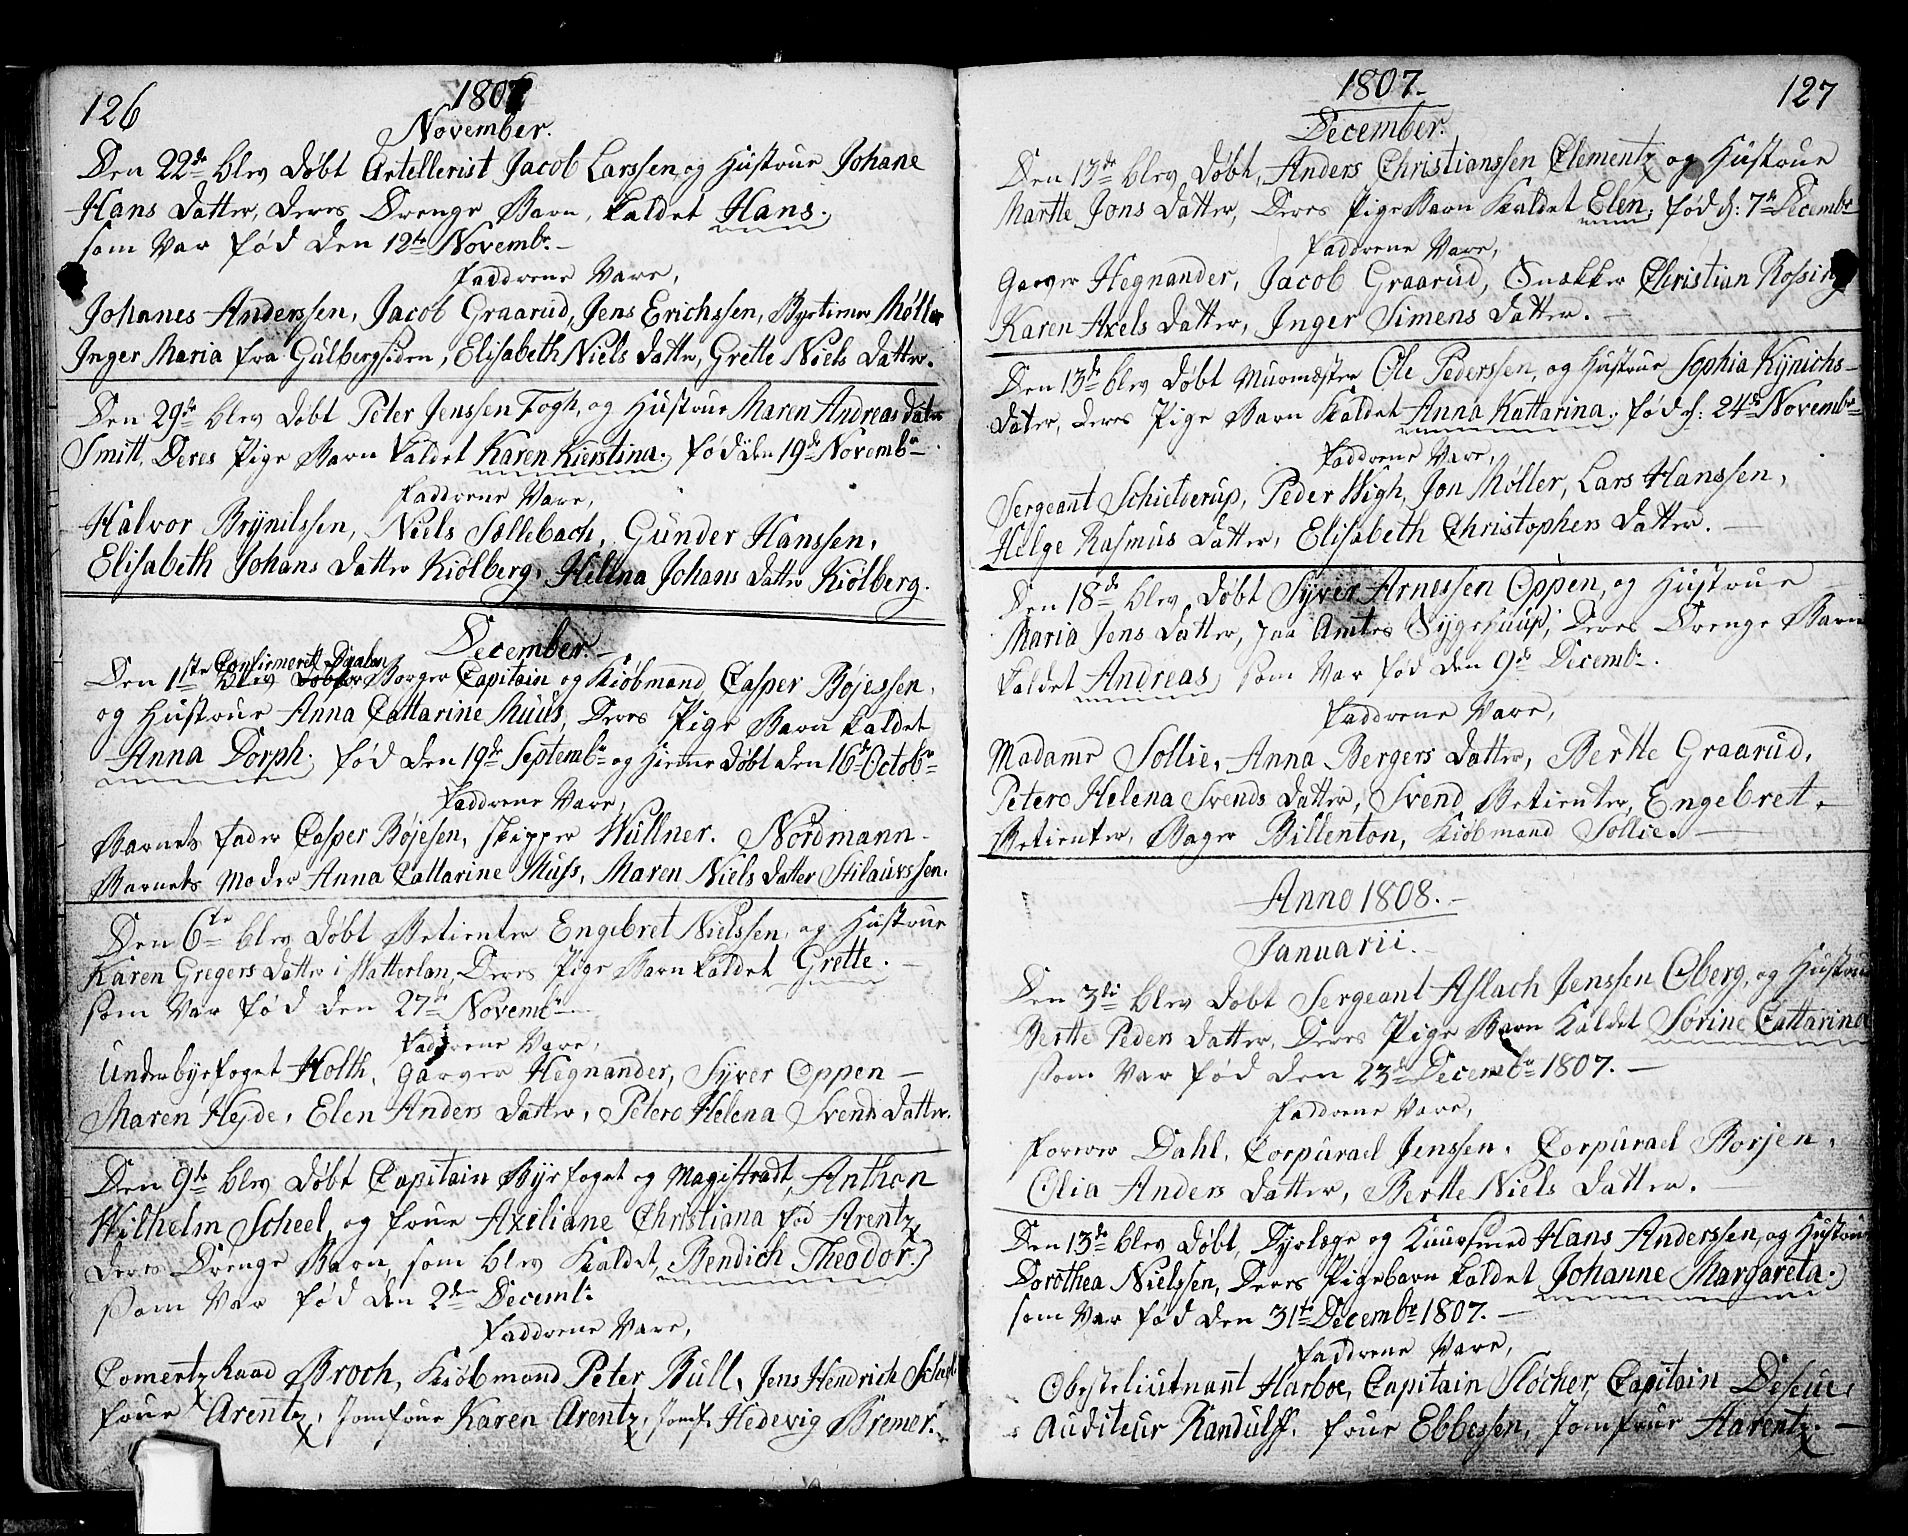 126
1807
November.
Den 22de blev Døbt Artellerist Jacob Larssen og Hustrue Johane
Hans Datter, Deres Drenge Barn, kaldet Hans.
som Var fød den 12te Novembr.
Faddrene Vare,
Johanes Anderssen, Jacob Graarud, Jens Erichssen, Møller
Inger Maria fra Gulbergsiden, Elisabeth Niels datter, Grette Niels Datter.
Den 29de blev Døbt Peter Jenssen Fogh, og Hustrue Maren Andreas Datter
Smitt, Deres Pige Barn kaldet Karen Kierstina. fød den 19de Novembr
Faddrene Vare,
Halvor Brynilssen, Niels Sællebach, Gunder Hanssen,
Elisabeth Johans Datter Kiølberg, Helena Johans Datter Kiølberg.
December.
Confirmeret Daaben
Den 1ste blev Døbt for Borger Capitain og Kiøbmand Casper Bøjessen,
og Hustrue Anna Cattarine Muus, Deres Pige Barn kaldet
Anna Dorph. fød den 19de Septembr og Hieme Døbt den 16de Octobr
Faddrene Vare,
Barnets fader Casper Bøjesen, skipper Wüllner. Nordmann
Barnets Moder Anna Cattarine Muss, Maren Niels datter Stilaurssen.
Den 6te blev Døbt Betienter Engebret Nielssen, og Hustrue
Karen Gregers Datter i Watterlan, Deres Pige Barn kaldet Grette.
som Var fød den 27de Novembr
Faddrene Vare,
Underbyefoget Holth, Garver Hegnander, Syver Oppen
Maren Hejde, Elen Anders Datter, Petero Helena Svends Datter.
Den 9de blev Døbt Capitain Byefoget og Magistradt, Anthon
Wilhelm Scheel, og frue Axeliane Christiana fød Arentz
deres Drenge Barn, som blev Kaldet, Bendich Theodor.
som Var fød den 2den Decembr
Faddrene Vare,
Comentz Raad Broch, Kiøbmand Peter Bull, Jens Hendrich
frue Arentz, Jomfrue Karen Arentz, Jomf. Hedevig Bremer.
1807.
127
December.
Den 13de blev Døbt, Anders Christianssen Clementz og Hustrue
Martte Jons Datter, Deres Pige Barn Kaldet Elen, fød d: 7de Decembr
Faddrene Vare,
Garver Hegnander, Jacob Graarud, Snækker Christian Rossing
Karen Axels Datter, Inger Simens Datter.
Den 13de blev Døbt Muurmæster Ole Pederssen, og Hustrue Sophia Kynichs-
Dater, Deres Pige Barn Kaldet Anna Kattarina, fød d: 24de Novembr
Faddrene Vare,
Sergeant Schielderup, Peder Wigh, Jon Møller, Lars Hanssen,
Helge Rasmus Datter, Elisabeth Christophers Datter.
Den 18de blev Døbt Syver Arnessen Oppen, og Hustrue
Maria Jens Datter, paa Amtes Sygehuus, Deres Drenge Barn
kaldet Andreas, som Var fød den 9de Decembr.
Faddrene Vare,
Madame Sollie, Anna Bergers Datter, Bertte Graarud,
Petero Helena Svends Datter, Svend Betienter, Engebret
Betienter, Bager Billenton, Kiøbmand Sollie.
Anno 1808.
Januarii.
Den 3de blev Døbt Sergeant Aslach Jenssen Oberg, og Hustrue
Bertte Peders Datter, Deres Pige Barn Kaldet Sørine Cattarina
som Var fød den 23de Decembr 1807.
Faddrene Vare,
forrer Dahl, Corpurael Jenssen, Corpurael Borjen,
Olia Anders Datter, Bertte Niels Datter.
Den 13de blev Døbt, Dyrlæge og Kuursmed Hans Anderssen, og Hustrue
Dorothea Nielssen, Deres Pigebarn kaldet Johanne Margareta.
som Var fød den 31te Decembr 1807.
Faddrene Vare,
Obesteliutnant Harboe, Capitain Sløcher, Capitain Deseue,
Auditeur Randulff. frue Ebbessen, Jomfrue Aarentz.